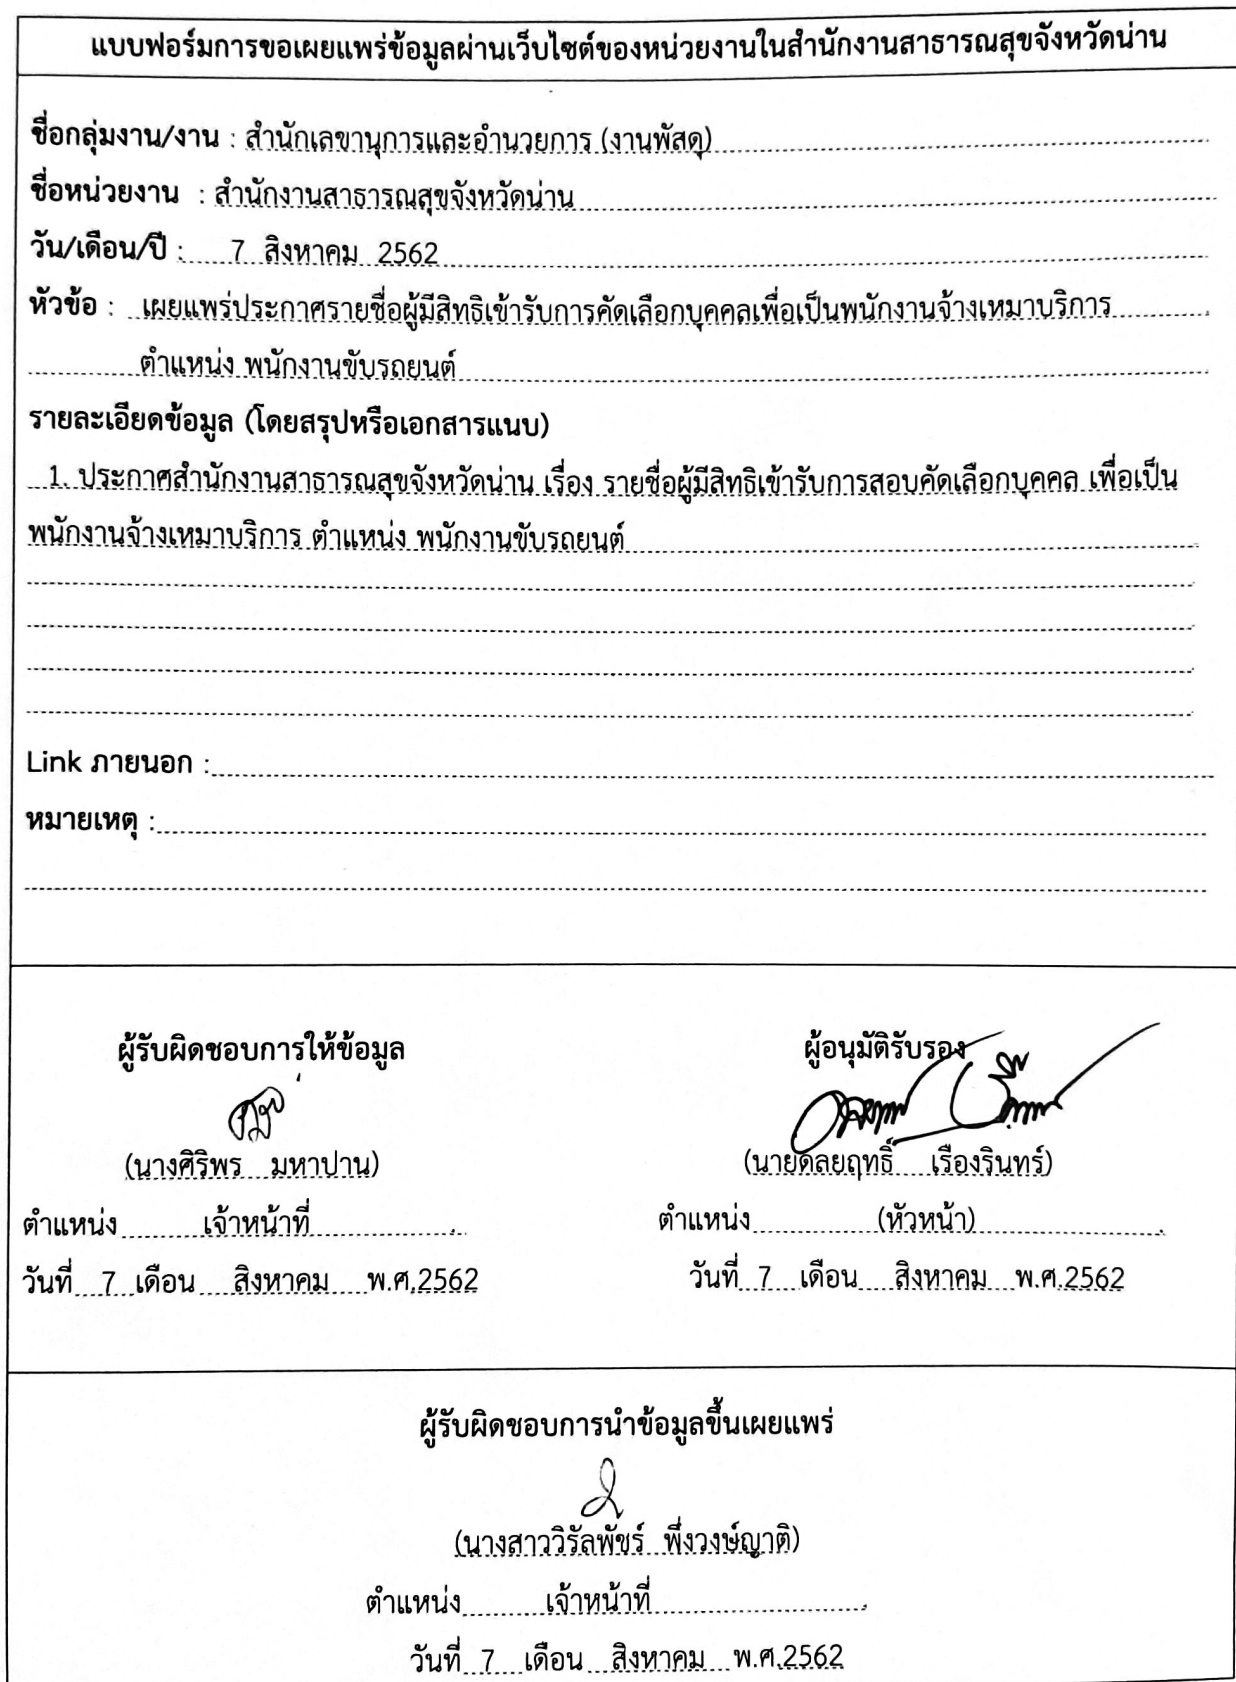 แบบฟอร์มการขอเผยแพร่ข้อมูลผ่านเว็บไซต์ของหน่วยงานในสำนักงานสาธารณสุขจังหวัดน่าน
ชื่อกลุ่มงาน/งาน : สำนักเลขานุการและอำนวยการ (งานพัสดุ)
ชื่อหน่วยงาน : สำนักงานสาธารณสุขจังหวัดน่าน
วัน/เดือน/ปี : 7 สิงหาคม 2562
หัวข้อ : เผยแพร่ประกาศรายชื่อผู้มีสิทธิเข้ารับการคัดเลือกบุคคลเพื่อเป็นพนักงานจ้างเหมาบริการ
ตำแหน่ง พนักงานขับรถยนต์
รายละเอียดข้อมูล (โดยสรุปหรือเอกสารแนบ)
1. ประกาศสำนักงานสาธารณสุขจังหวัดน่าน เรื่อง รายชื่อผู้มีสิทธิเข้ารับการสอบคัดเลือกบุคคล เพื่อเป็น
พนักงานจ้างเหมาบริการ ตำแหน่ง พนักงานขับรถยนต์
Link ภายนอก :
หมายเหตุ :
ผู้รับผิดชอบการให้ข้อมูล
(นางศิริพร มหาปาน)
ตำแหน่ง เจ้าหน้าที่
วันที่ 7 เดือน สิงหาคม พ.ศ.2562
ผู้อนุมัติรับรอง
(นายดลยฤทธิ์ เรืองรินทร์)
ตำแหน่ง (หัวหน้า)
วันที่ 7 เดือน สิงหาคม พ.ศ.2562
ผู้รับผิดชอบการนำข้อมูลขึ้นเผยแพร่
(นางสาววิรัลพัชร์ พึ่งวงษ์ญาติ)
ตำแหน่ง เจ้าหน้าที่
วันที่ 7 เดือน สิงหาคม พ.ศ.2562